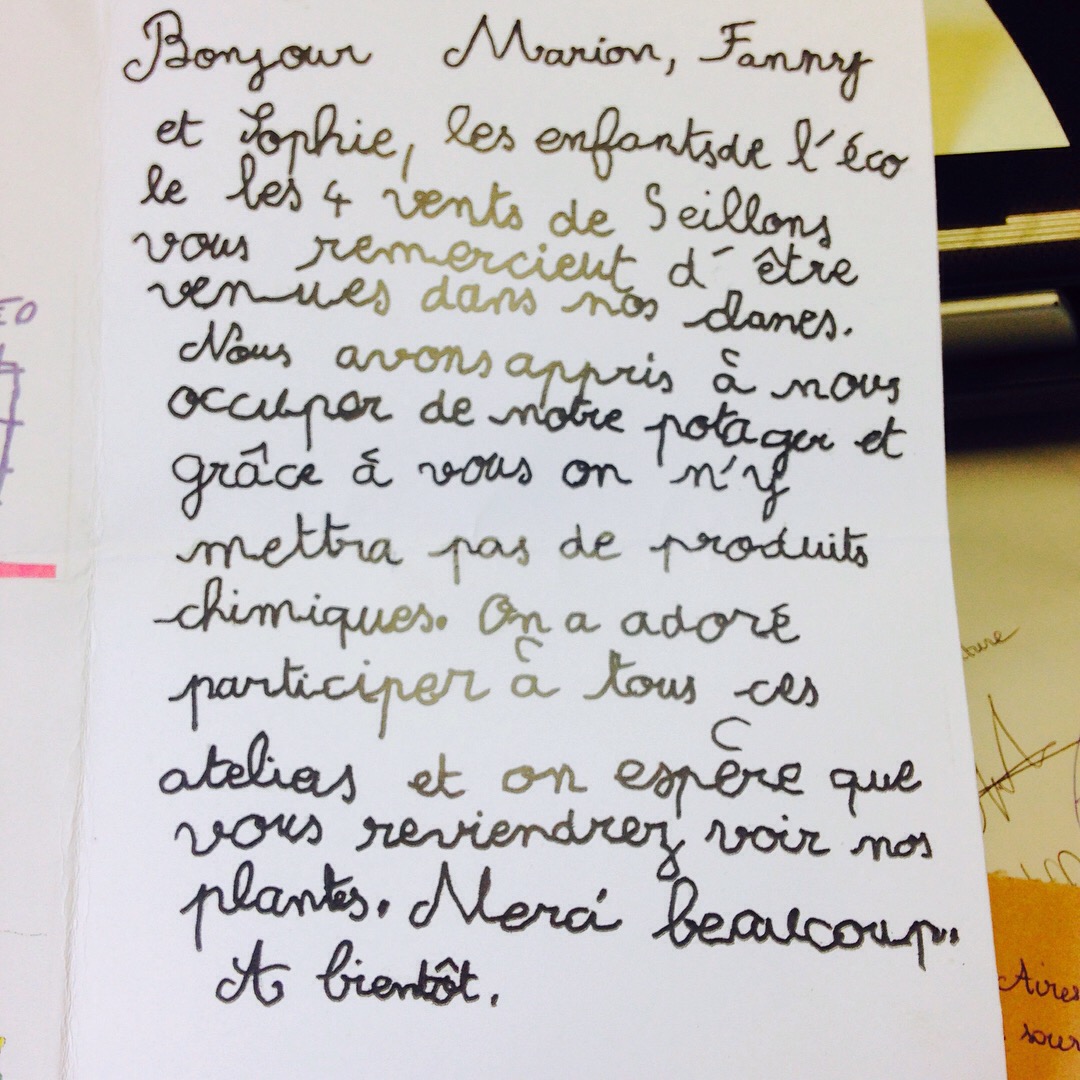 Bonjour Marion, Fanny
et Sophie, les enfants de l'éco
le les 4 vents de Seillons
vous remercient d'être
venues dans nos classes.
Nous avons appris à nous
occuper de notre potager et
grâce à vous on n'y
mettra pas de produits
chimiques. On a adoré
participer à tous ces
ateliers et on espère que
vous reviendrez voir nos
plantes. Merci beaucoup.
A bientôt.
EO
Aires
sour